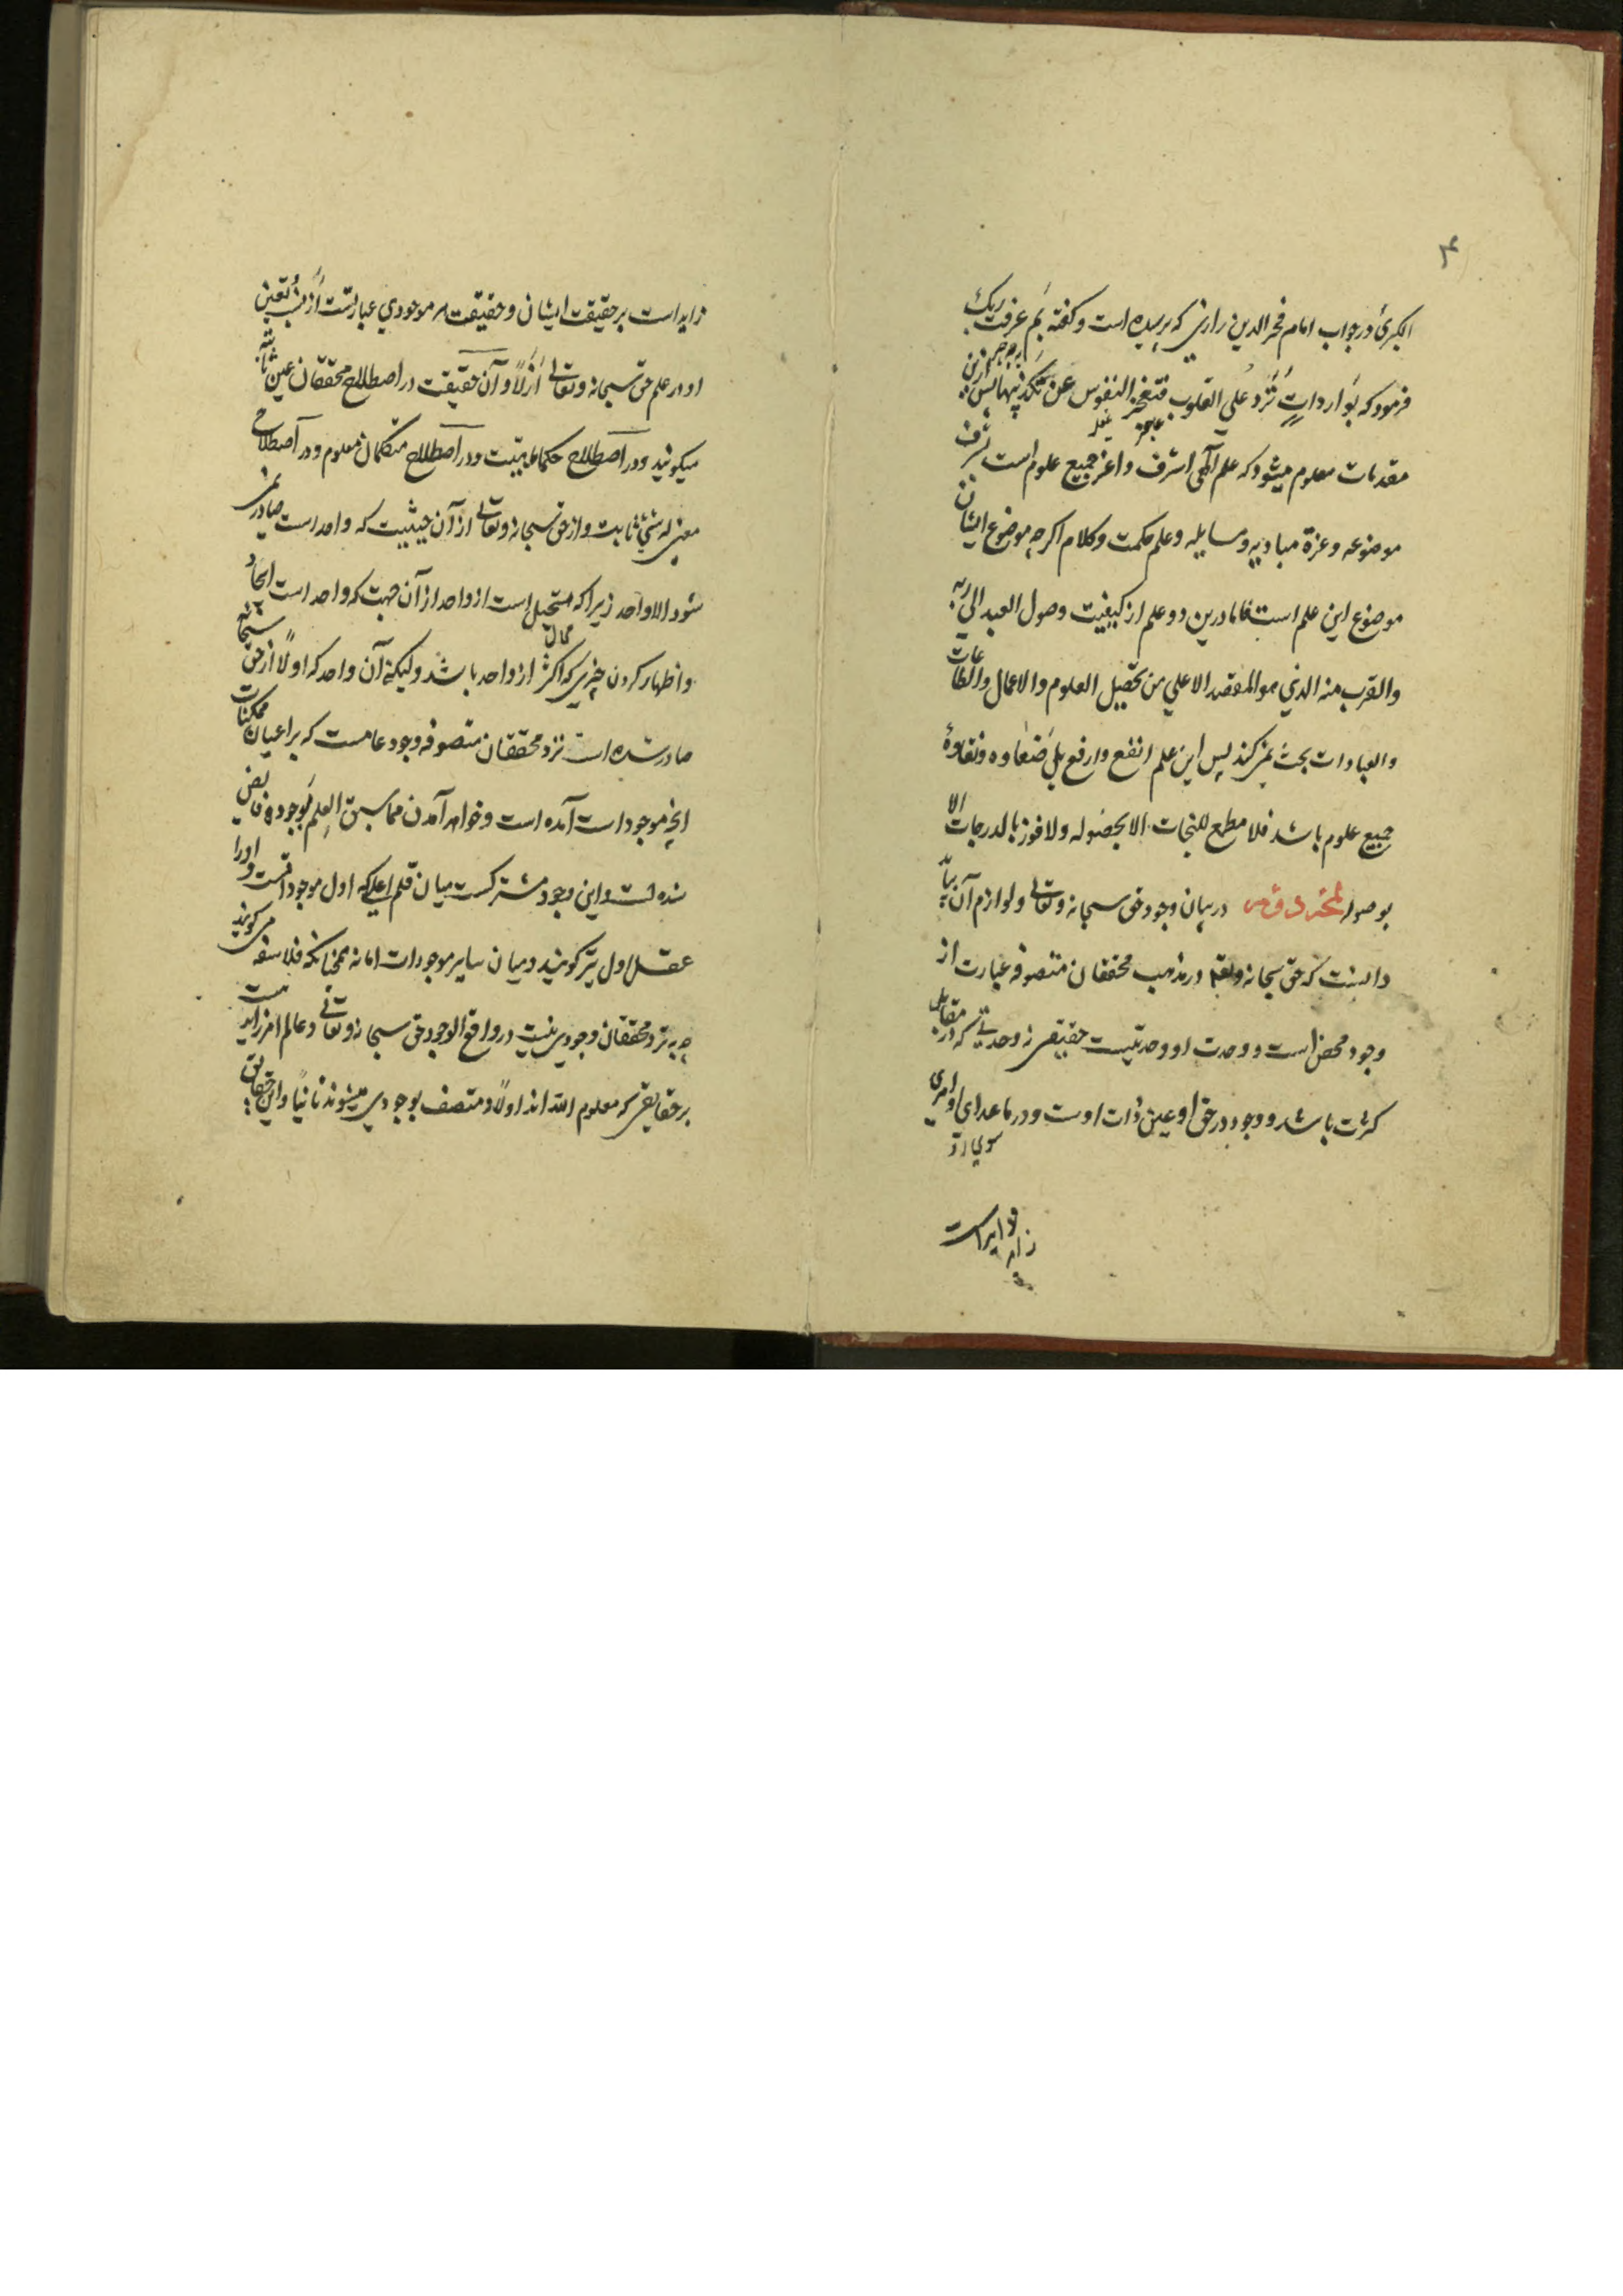 ۴
الکبری در جواب امام فخر الدین رازی که پرسیده است و گفته بم عرفت ربک
فرمود که بواردات ترد علی القلوب فتعجز النفوس عن تکذیبها پس ازین
مقدمات معلوم میشود که علم الهی اشرف و اعز جمیع علوم است شرف
موضوعه و عزة مبادیه و مسایله و علم حکمت و کلام اکرچه موضوع ایشان
موضوع این علم است فاما درین دو علم از کیفیت وصول العبد الی ربه
والقرب منه الذی هو المقصد الاعلی من تحصیل العلوم والاعمال والطاعات
والعبادات بحث نمی کنند پس این علم انفع و ارفع بل و نقاوهٔ
جمیع علوم باشد فلا مطمع للنجات الا بحصوله ولا فوز بالدرجات الا
بوصوله در بیان وجود حق سبحانه و تعالی و لوازم آن
دانست که حق سبحانه و تعالی در مذهب محققان متصوفه عبارت از
وجود محض است و وحدت او وحدتیست حقیقی نه وحدتی که در مقابل
کثرت باشد و وجود در حق او عین ذات اوست و در ماعدای او امری
زاید است
زاید است بر حقیقت ایشان و حقیقت هر موجودی عبارتست از نسب تعین
او در علم حق سبحانه و تعالی ازلا و آن حقیقت در اصطلاح محققان عین ثابته
میکویند و در اصطلاح حکما ماهیت و در اصطلاح متکلمان معلوم و در اصطلاح
معتزله شیئ ثابت و از حق سبحانه و تعالی از آن حیثیت که واحد است صادر نمی
شود الا واحد زیرا که مستحیل است از واحد از آن جهت که واحد است ایجاد
محال
و اظهار کردن چیزی که اکثر از واحد باشد ولیکن آن واحد که اولا از حق سبحانه
صادر شده است نزد محققان متصوفه وجود عامست که بر اعیان ممکنات
آنچه موجود است آمده است و خواهد آمدن مما سبق العلم بوجوده فایض
شده است و این وجود مشترکست میان قلم اعلی که اول موجود است و او را
عقل اول نیز کویند و میان سایر موجودات اما نه همچنانکه فلاسفه می کویند
چه نزد محققان وجودی نیست در واقع الا وجود حق سبحانه و تعالی و عالم امر زاید نیست
بر حقایقی که معلوم الله اند اولا و متصف بوجودی میشوند ثانیا و این حقایق